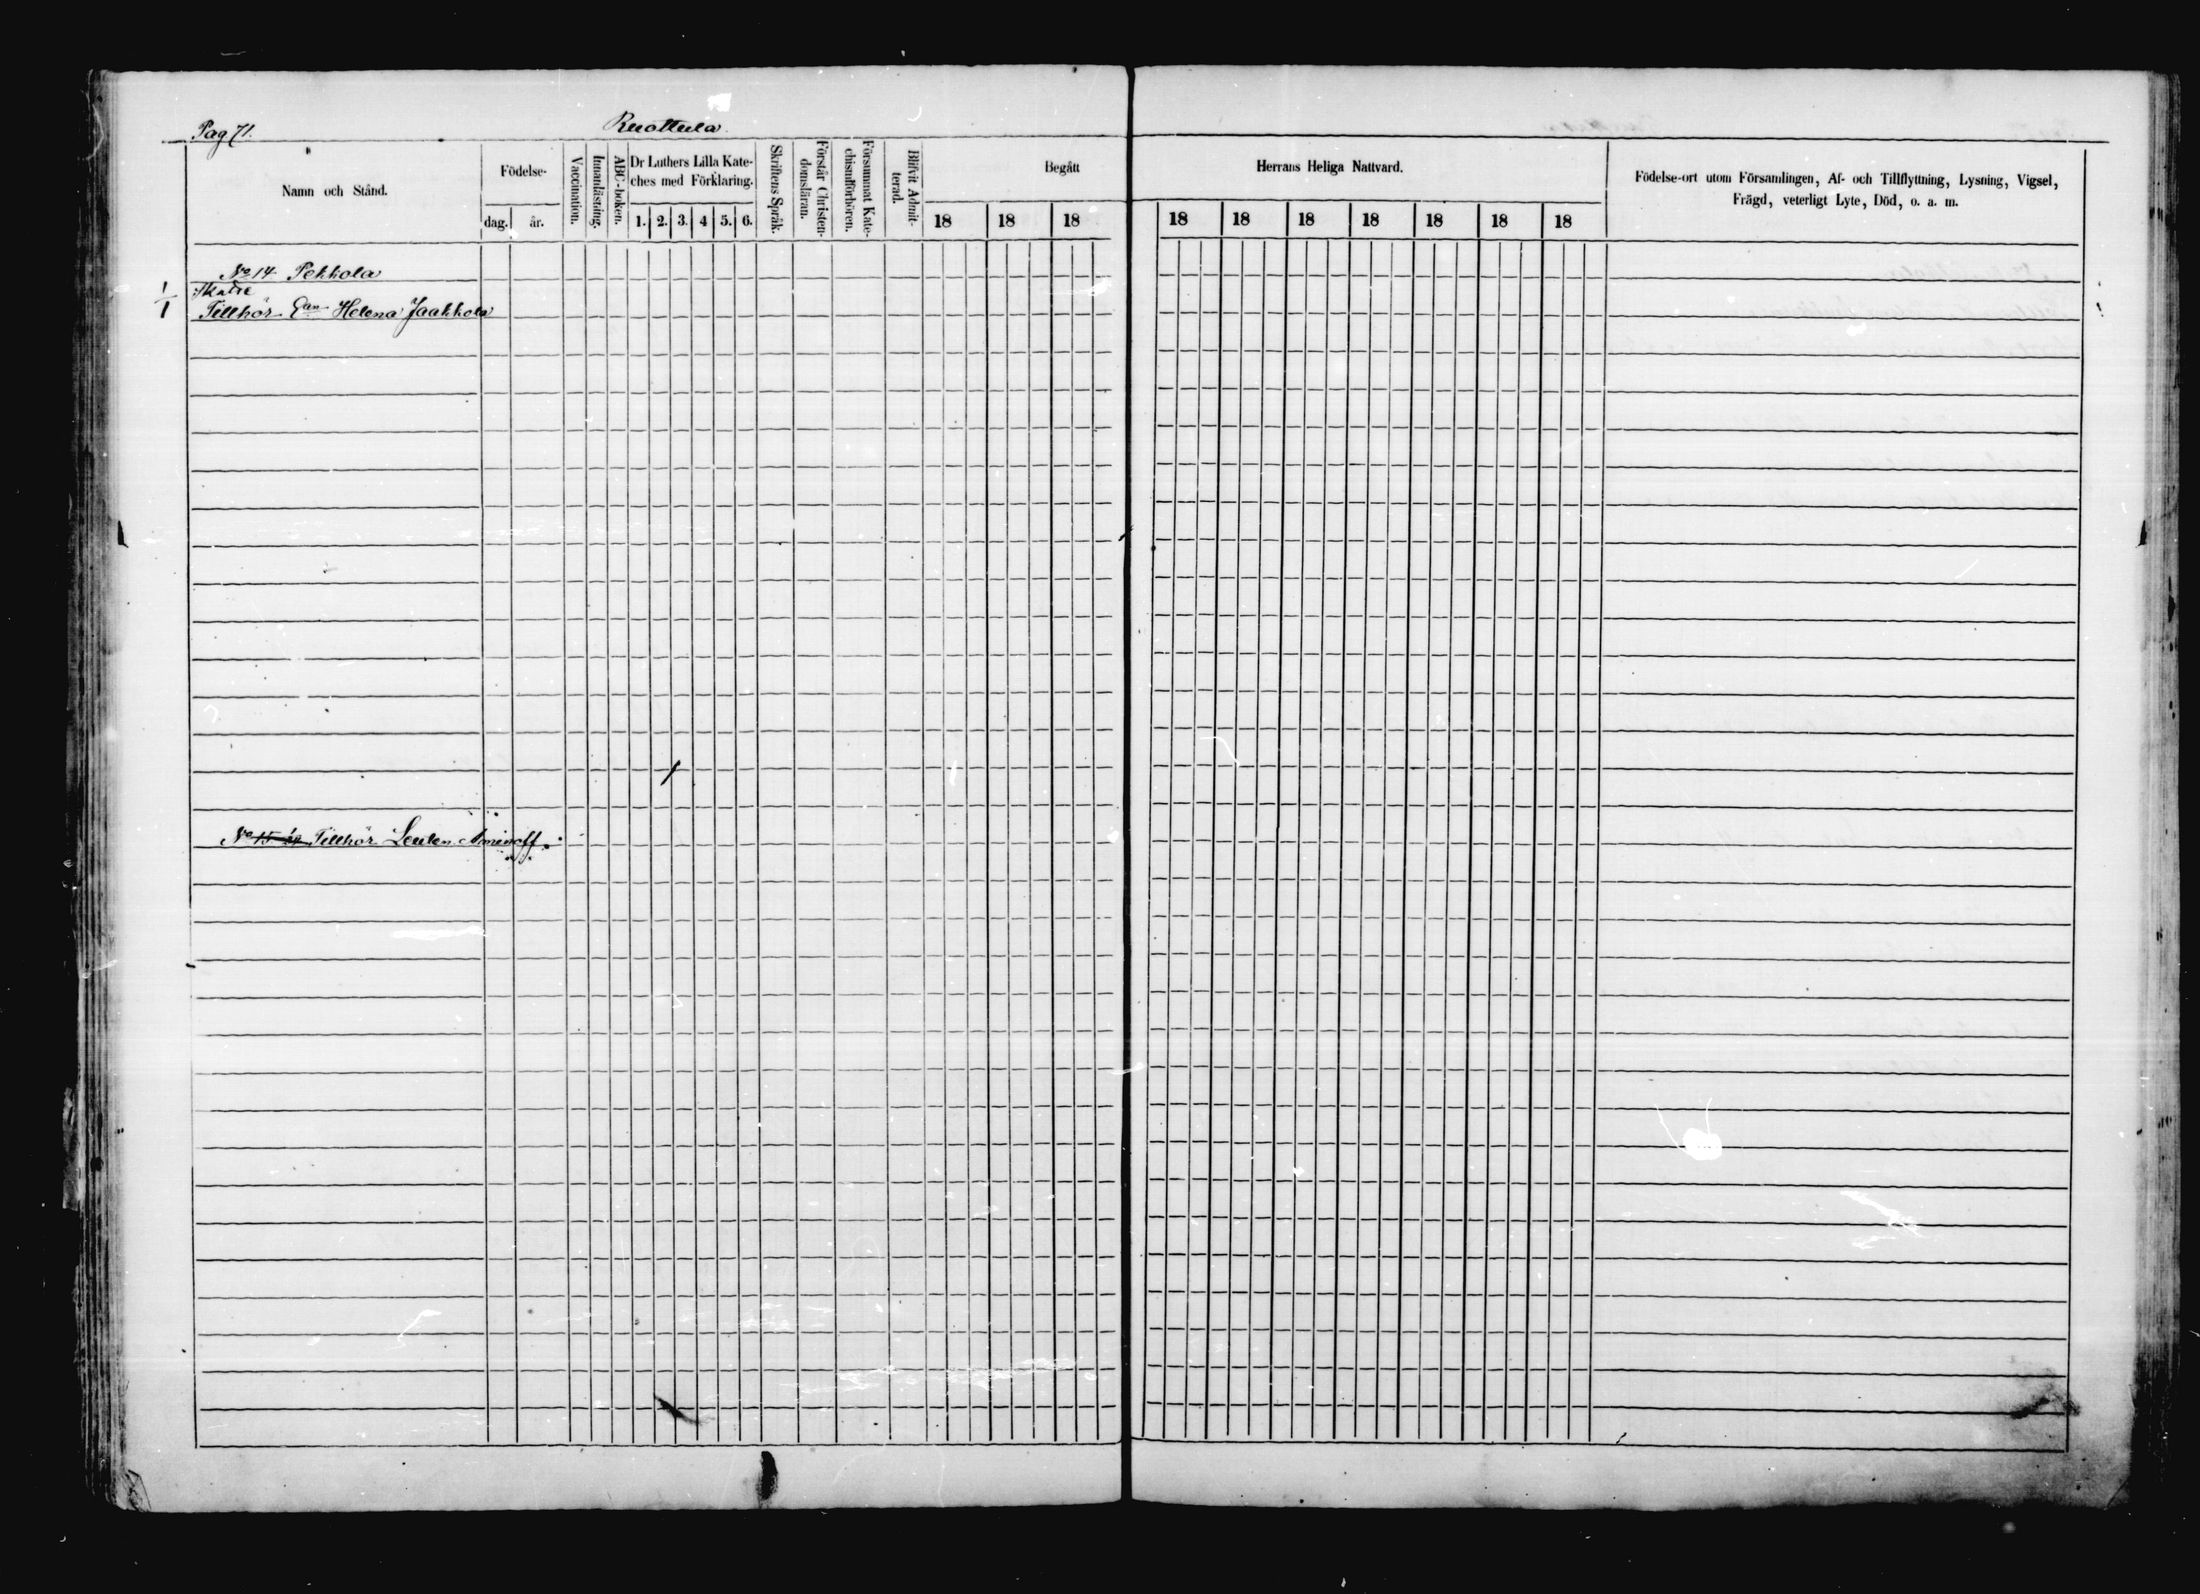 Pag 71.
Ruottula
Namn och Stånd.
Födelse-
dag.
år.
Vaccination.
Innanläsning.
ABC-boken.
Dr Luthers Lilla Kate-
ches med Förklaring.
1. 2. 3. 4 5. 6.
Skriftens Språk.
Förstår Christen-
domsläran.
Försummat Kate-
chismiförhören.
Blifvit Admit-
terad.
Begått
Herrans Heliga Nattvard.
18 18 18 18 18 18 18 18 18 18
Födelse-ort utom Församlingen, Af- och Tillflyttning, Lysning, Vigsel,
Frägd, veterligt Lyte, Död, o. a. m.
No 14 Pekkola
1/1 Skatte
Tillhör Ean Helena Jaakkola
No 15 Tillhör Leuten Aminoff.